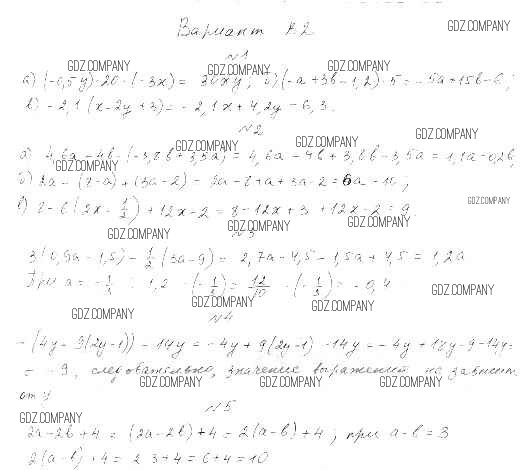 Вариант К2
GDZ.COMPANY
№1
GDZ.COMPANY GDZ.COMPANY GDZ.COMPANY
а) (-0,5y)·20·(-3x) = 30xy; б) (-a+3b-1,2)·5 = -5a+15b-6;
в) -2,1(x-2y+3) = -2,1x+4,2y-6,3.
№2
GDZ.COMPANY GDZ.COMPANY GDZ.COMPANY
а) 4,6a-4b-(-3,8b+3,5a) = 4,6a-4b+3,8b-3,5a = 1,1a-0,2b;
GDZ.COMPANY
= 6a-10;
GDZ.COMPANY
+12x-2 = 8-12x+3+12x-2 = 9
GDZ.COMPANY GDZ.COMPANY
№3
3(0,9a-1,5)-1/2(3a-9) = 2,7a-4,5-1,5a+4,5 = 1,2a
При a = -1/3 : 1,2·(-1/3) = 12/10·(-1/3) = -0,4
GDZ.COMPANY
GDZ.COMPANY GDZ.COMPANY
GDZ.COMPANY
№4
-(4y-9(2y-1))-14y = -4y+9(2y-1)-14y = -4y+18y-9-14y=
= -9, следовательно, значение выражения не зависит
GDZ.COMPANY GDZ.COMPANY GDZ.COMPANY
от y
GDZ.COMPANY
№5
2a-2b+4 = (2a-2b)+4 = 2(a-b)+4; при a-b=3
2(a-b)+4 = 2·3+4 = 6+4 = 10